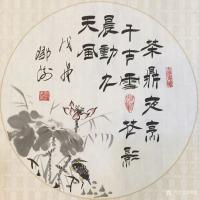 茶鼎夜烹
千古雪花影
晨動九
天風
戊戌